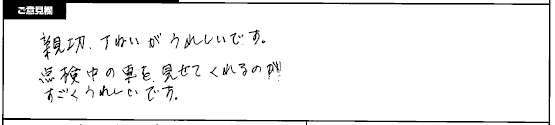 ご意見欄
親切、ていねいがうれしいです。
点検中の車を見せてくれるのが
すごくうれしいです。